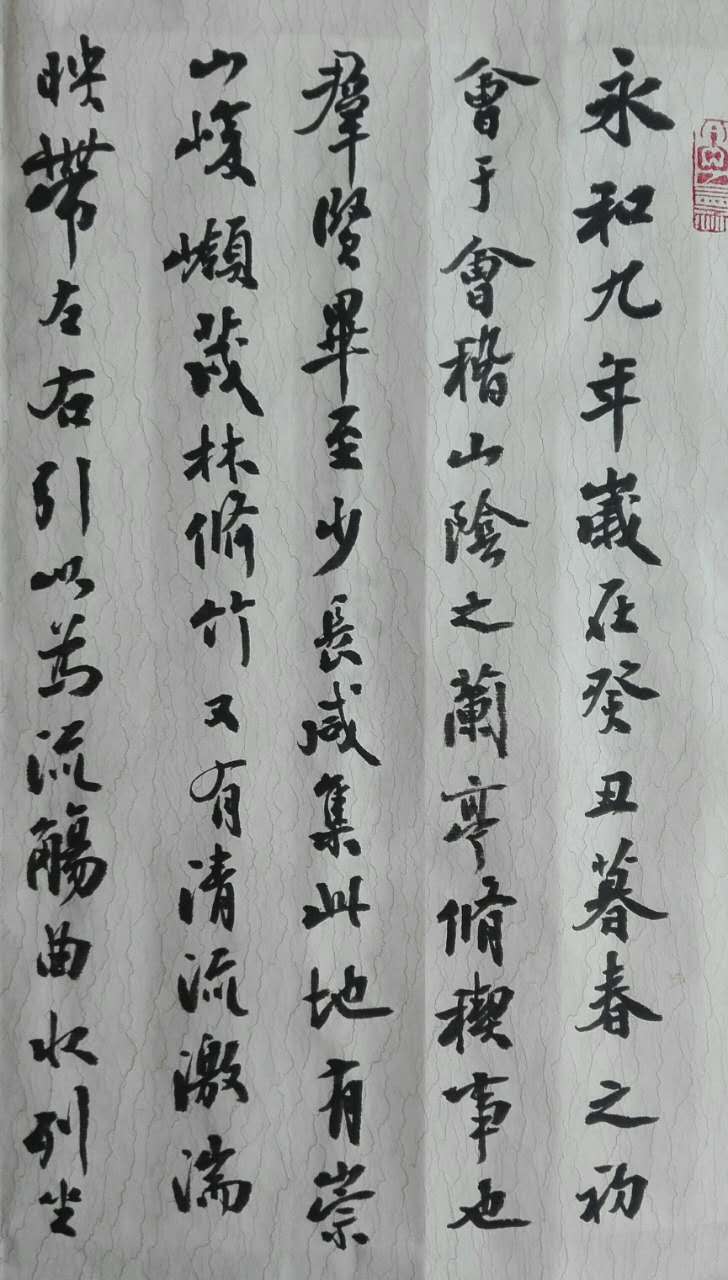 永和九年歲在癸丑暮春之初
會于會稽山陰之蘭亭脩稧事也
羣賢畢至少長咸集此地有崇
山峻嶺茂林脩竹又有清流激湍
映帶左右引以為流觴曲水列坐